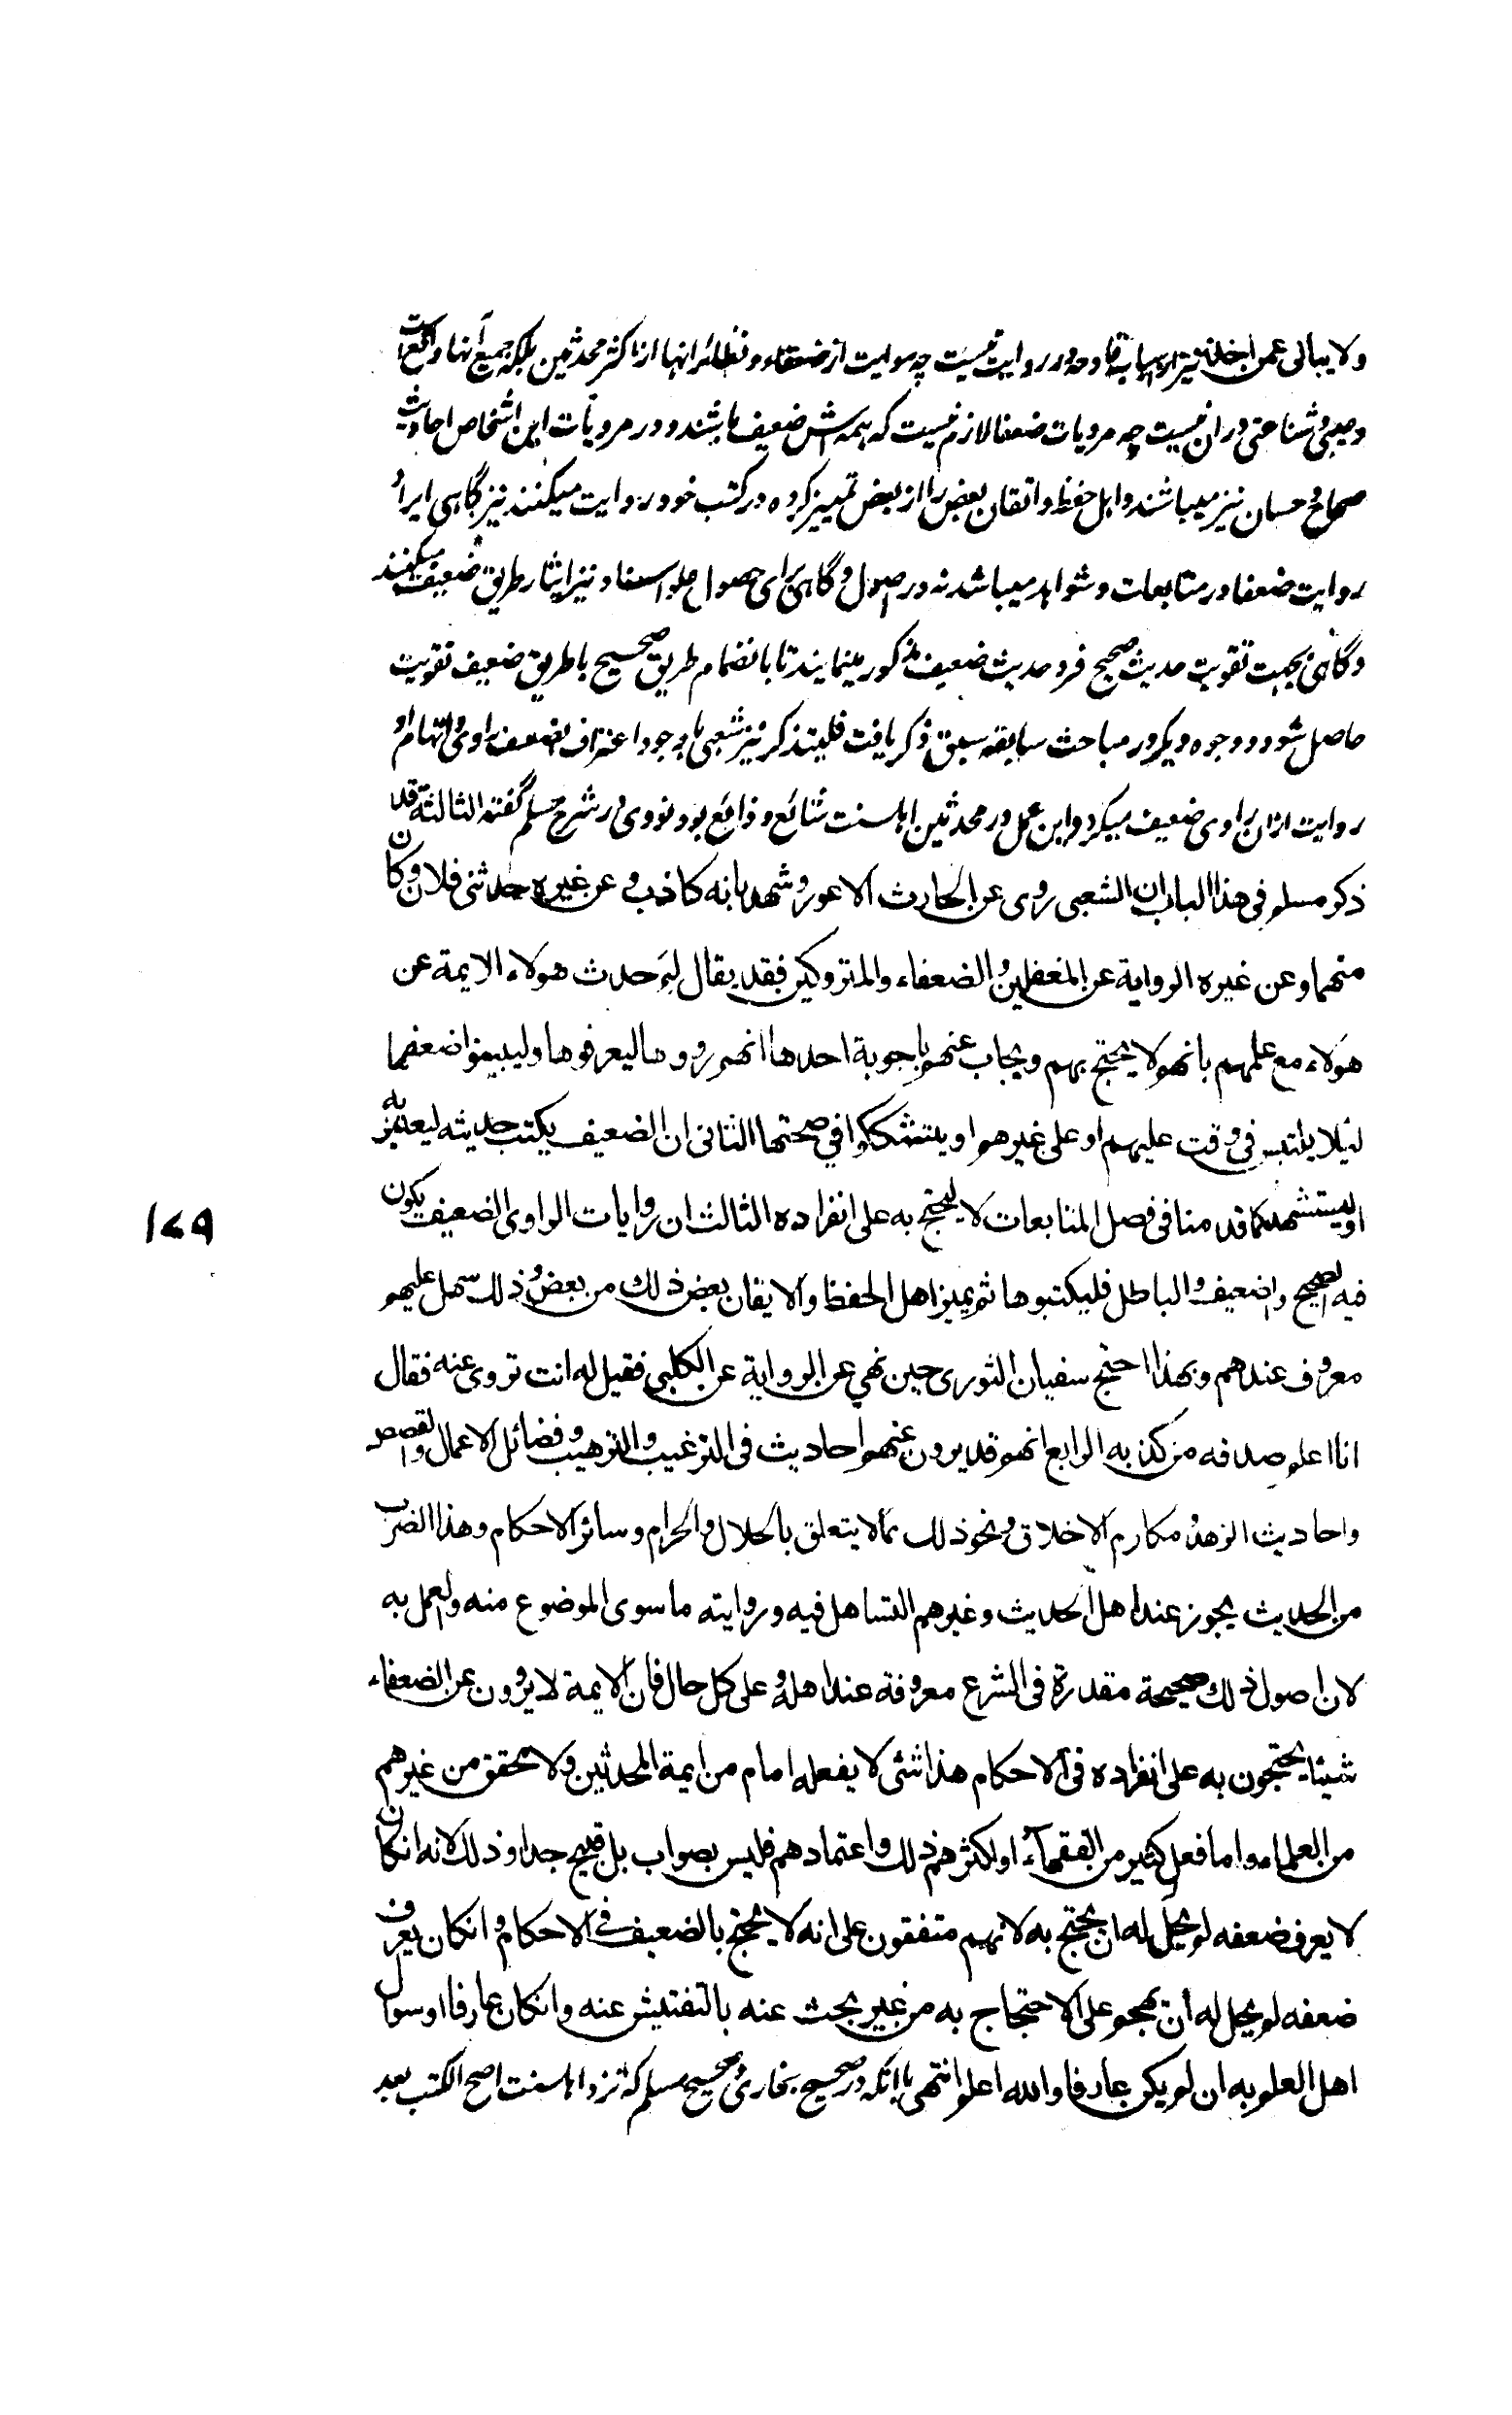 ولا یبالی عمن اخذ نیز از اسباب قادحه در روایت نیست چه روایت از ضعفاء و نظائر انها از اکثر محدثین بلکه جمیع آنها واقع است
و عیبی و شناعتی در ان نیست چه مرویات ضعفا لازم نیست که همه اش ضعیف باشند و در مرویات این اشخاص احادیث
صحاح و حسان نیز میباشند و اهل حفظ و اتقان بعض را از بعض تمییز کرده در کتب خود روایت میکنند نیز گاهی ایراد
روایت ضعفا در متابعات و شواهد میباشد نه در اصول و گاهی برای حصول علو اسناد نیز ایثار طریق ضعیف میکنند
و گاهی بجهت تقویت حدیث صحیح فرد حدیث ضعیف مذکور مینمایند تا بانضمام طریق صحیح با طریق ضعیف تقویت
حاصل شود و وجوه دیگر در مباحث سابقه سبق ذکر یافت فلیتذکر نیز شعبی با وجود اعتراف بضعف راوی و اتهام او
روایت ازان راوی ضعیف میکرد و این عمل در محدثین اهلسنت شائع و ذائع بود نووی در شرح مسلم گفته الثالثة قد
ذکر مسلم فی هذا الباب ان الشعبی روی عن الحارث الاعور و شهد بانه کاذب و عن غیره حدثنی فلان و کان
متهما و عن غیره الروایة عن المغفلین و الضعفاء والمتروکین فقد یقال لم حدث هولاء الایمة عن
هولاء مع علمهم بانهم لا یحتج بهم ویجاب عنهم باجوبة احدها انهم رووها لیعرفوها ولیبینوا ضعفها
لئلا یلتبس فی وقت علیهم او علی غیرهم او یتشککوا فی صحتها الثانی ان الضعیف یکتب حدیثه لیعتبر به
او یستشهد کما قدمنا فی فصل المتابعات لا لیحتج به علی انفراده الثالث ان روایات الراوی الضعیف یکون
فیه الصحیح والضعیف والباطل فلیکتبوها ثم یمیز اهل الحفظ والاتقان بعض ذلک من بعض و ذلک سهل علیهم
معروف عندهم وبهذا احتج سفیان الثوری حین نهی عن الروایة عن الکلبی فقیل له انت تروی عنه فقال
انا اعلم صدقه من کذبه الرابع انهم قد یروون عنهم احادیث فی الترغیب والترهیب و فضائل الاعمال والقصص
واحادیث الزهد و مکارم الاخلاق و نحو ذلک مما لا یتعلق بالحلال والحرام وسائر الاحکام وهذا الضرب
من الحدیث یجوز عند اهل الحدیث و غیرهم التساهل فیه و روایته ما سوی الموضوع منه والعمل به
لان اصول ذلک صحیحة مقدرة فی الشرع معروفة عند اهله و علی کل حال فان الایمة لا یروون عن الضعفاء
شیئا یحتجون به علی انفراده فی الاحکام هذا شئی لا یفعله امام من ایمة المحدثین ولا محقق من غیرهم
من العلماء واما فعل کثیر من الفقهاء او اکثرهم ذلک واعتمادهم فلیس بصواب بل قبیح جدا وذلک لانه انکان
لا یعرف ضعفه لم یحل له ان یحتج به لانهم متفقون علی انه لا یحتج بالضعیف فی الاحکام وانکان یعرف
ضعفه لم یحل له ان یهجم علی الاحتجاج به من غیر بحث عنه بالتفتیش عنه وانکان عارفا او سوال
اهل العلم به ان لم یکن عارفا والله اعلم انتهی با آنکه در صحیح بخاری و صحیح مسلم که نزد اهلسنت اصح الکتب بعد
۱۷۹